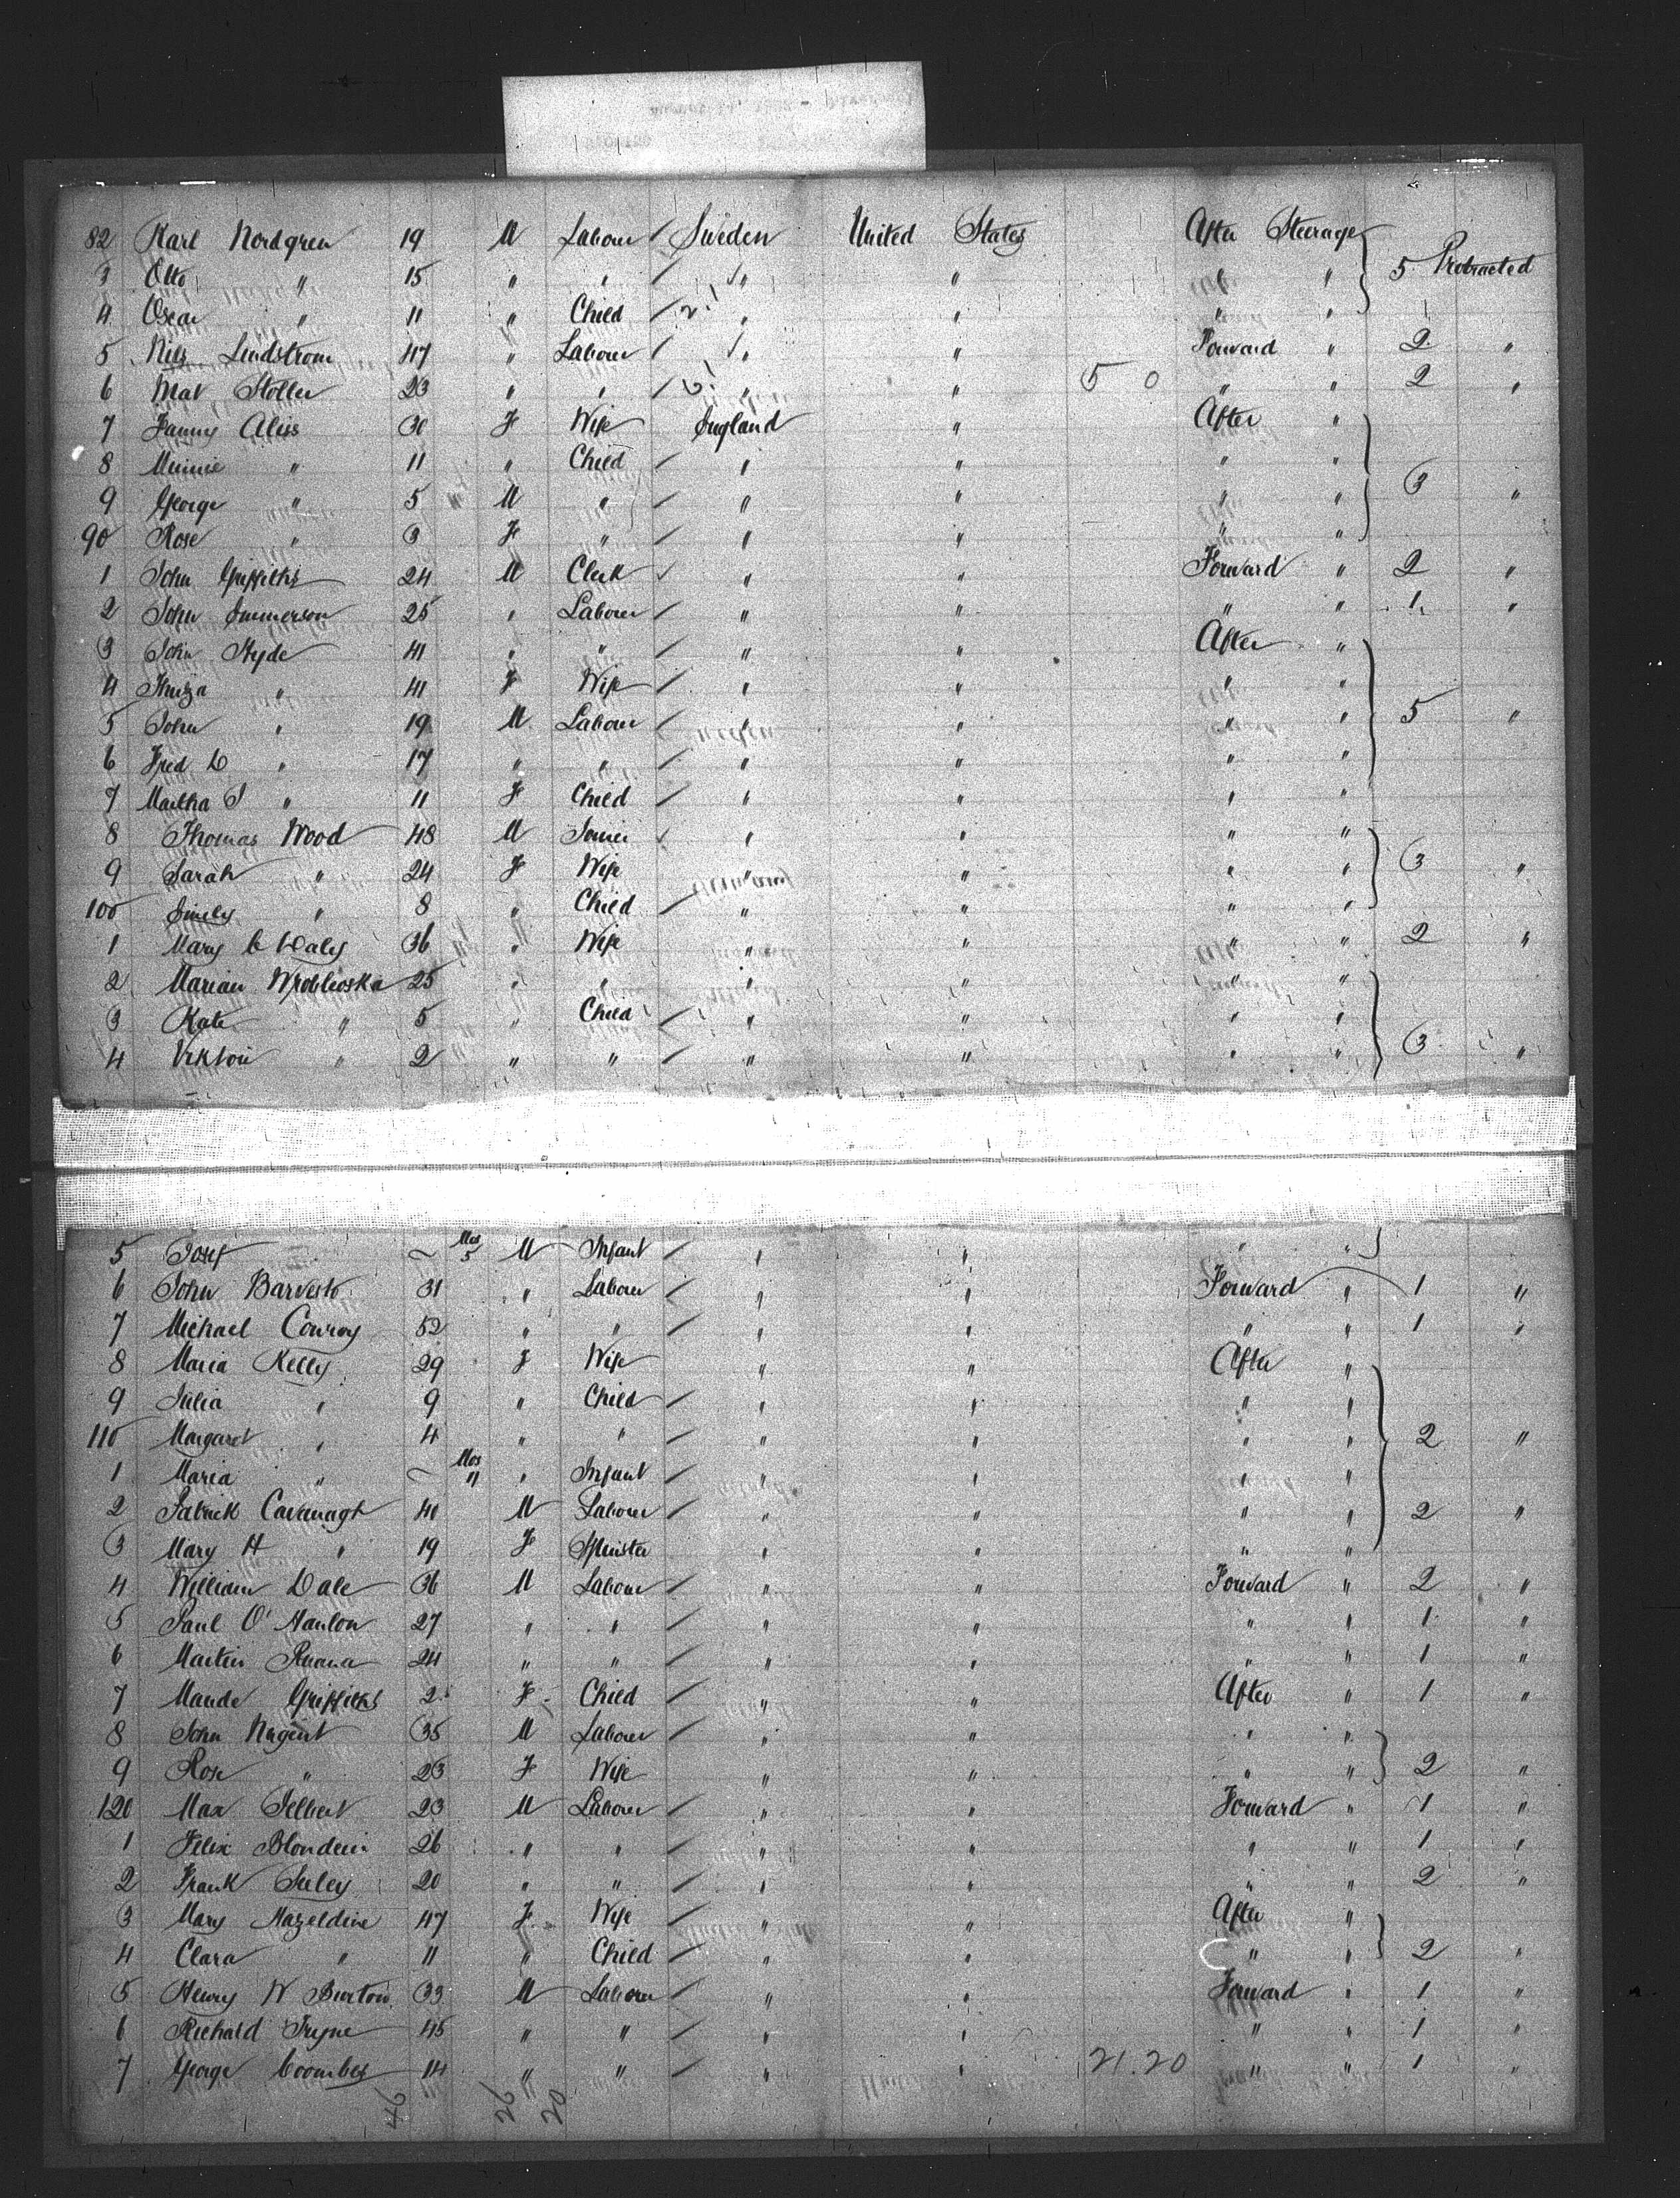 82 Karl Nordgren 19 M Labour Sweden United States After Steerage 5 Protracted
3 Otto " 15 " " " " " "
4 Oscar " 11 " Child " " " "
5 Nils Lindstrom 47 " Labour " " Forward " 2 "
6 Mat Stoller 23 " " " " 5 0 " " 2 "
7 Fanny Aliss 30 F Wife England " After "
8 Minnie " 11 " Child " " " "
9 George " 5 M " " " " " 3 "
90 Rose " 3 F " " " " "
1 John Griffiths 24 M Clerk " " Forward " 2 "
2 John Emmerson 25 " Labour " " " " 1 "
3 John Hyde 41 " " " " After "
4 Thirza " 41 F Wife " " " "
5 John " 19 M Labour " " " " 5 "
6 Fred D " 17 " " " " " "
7 Martha S " 11 F Child " " " "
8 Thomas Wood 48 M Joiner " " " "
9 Sarah " 24 F Wife " " " " 3 "
100 Emily " 8 " Child " " " "
1 Mary C Daly 36 " Wife " " " " 2 "
2 Marian Wroblioska 25 " " " " " "
3 Kate " 5 " Child " " " "
4 Viktori " 2 " " " " " " 3 "
5 Josef ~ Mos 5 M Infant " " " "
6 John Barvesto 31 " Labour " " Forward " 1 "
7 Michael Conroy 52 " " " " " " 1 "
8 Maria Kelly 29 F Wife " " After "
9 Julia " 9 " Child " " " "
110 Margaret " 4 " " " " " " 2 "
1 Maria " ~ Mos 11 " Infant " " " "
2 Patrick Cavanagh 40 M Labour " " " " 2 "
3 Mary H " 19 F Spinster " " " "
4 William Dale 36 M Labour " " Forward " 2 "
5 Paul O'Hanlon 27 " " " " " " 1 "
6 Martin Ruana 24 " " " " " " 1 "
7 Maude Griffiths 2 F Child " " After " 1 "
8 John Nugent 35 M Labour " " " "
9 Rose " 23 F Wife " " " " 2 "
120 Max Selbert 23 M Labour " " Forward " 1 "
1 Felix Blondein 26 " " " " " " 1 "
2 Frank Seeley 20 " " " " " " 2 "
3 Mary Hazeldine 47 F Wife " " After "
4 Clara " 11 " Child " " " " 2 "
5 Henry W Burton 33 M Labour " " Forward " 1 "
6 Richard Tryne 45 " " " " " " 1 "
7 George Coombes 14 " " " " 21.20 " " 1 "
46 26 20